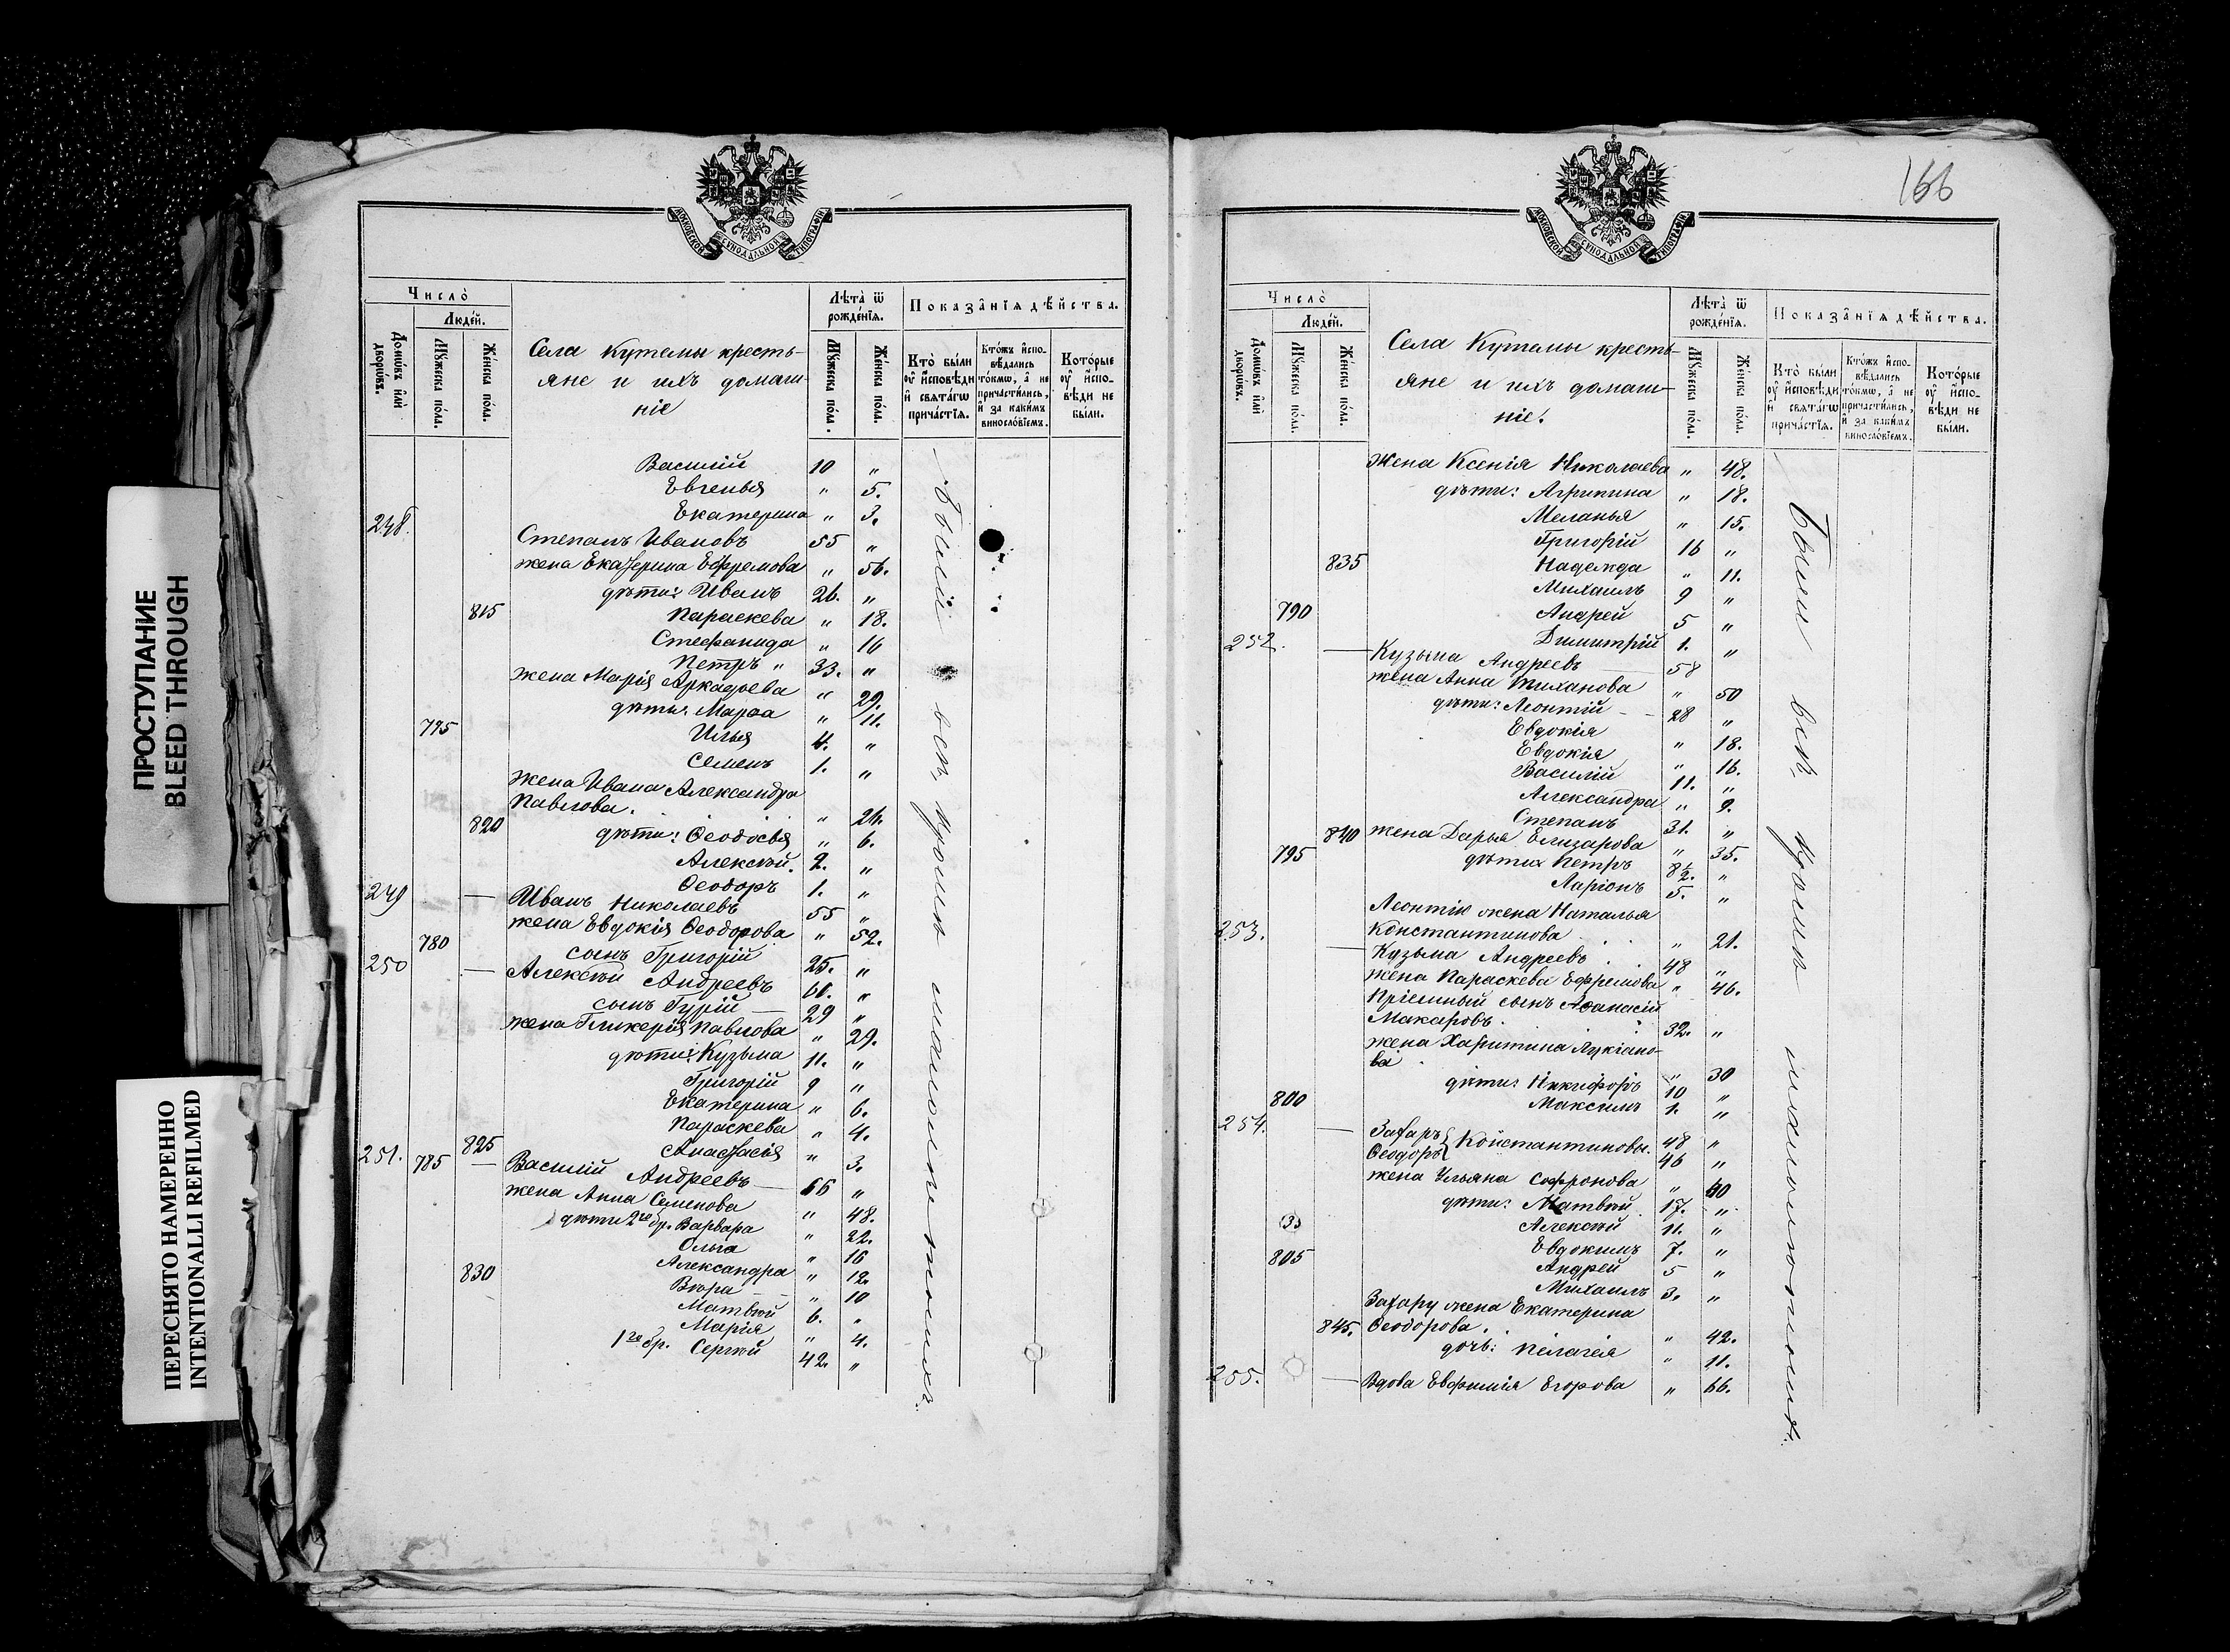 ПРОСТУПАНИЕ
BLEED THROUGH
ПЕРЕСНЯТО НАМЕРЕННО
INTENTIONALLI REFILMED
МОСКОВСКОЙ СѴНОДАЛЬНОЙ ТИПОГРАФІИ
Число̀
Людéй.
Домѡ́въ и҆лѝ дворѡ́въ.
Мꙋ́жеска по́ла.
Же́нска по́ла.
Лѣ́та ѿ рожде́нїѧ.
Мꙋ́жеска по́ла.
Же́нска по́ла.
Показа̂нїѧ дѣ́йства.
Кто̀ бы́ли оу҆ и҆сповѣди и҆ свѧта́гѡ прича́стїѧ.
Кто́жъ и҆сповѣдались то́кмѡ, а҆ не причасти́лись, и҆ за каки́мъ виносло́вїемъ.
Кото́рые оу҆ и҆сповѣди не бы́ли.
Села Кутемы кресть-
яне и ихъ домаш-
ніе
Василій 10 "
Евгенья " 5.
Екатерина " 3.
248. Степанъ Ивановъ 55 "
жена Екатерина Ефремова " 56.
дѣти: Иванъ 26. "
815 Параскева " 18.
Стефанида " 16
Петръ " 33. "
жена Марія Аркадьева " 29.
дѣти: Марѳа " 11.
775 Илья 4. "
Семенъ 1. "
жена Ивана Александра
Павлова. " 24.
820 дѣти: Ѳеодосья " 6.
Алексѣй. 2. "
Ѳеодоръ 1. "
249 — Иванъ Николаевъ 55 "
жена Евдокія Ѳеодорова " 52.
780 сынъ Григорій 25. "
250 — Алексѣй Андреевъ 61. "
сынъ Гурій — 29 "
жена Гликерія Павлова " 29.
дѣти: Кузьма 11. "
Григорій 9 "
Екатерина " 6.
Параскева " 4.
825 Анастасія " 3.
251. 785 — Василій Андреевъ — 66 "
жена Анна Семенова " 48.
дѣти 2го бр. Варвара " 22.
Ольга " 16
Александра " 12.
830 Вѣра — " 10
Матвѣй 6. "
Марія " 4.
1го бр. Сергѣй 42. "
Были всѣ, кромѣ малолѣтнихъ.
166
МОСКОВСКОЙ СѴНОДАЛЬНОЙ ТИПОГРАФІИ
Число̀
Людéй.
Домѡ́въ и҆лѝ дворѡ́въ.
Мꙋ́жеска по́ла.
Же́нска по́ла.
Лѣ́та ѿ рожде́нїѧ.
Мꙋ́жеска по́ла.
Же́нска по́ла.
Показа̂нїѧ дѣ́йства.
Кто̀ бы́ли оу҆ и҆сповѣди и҆ свѧта́гѡ прича́стїѧ.
Кто́жъ и҆сповѣдались то́кмѡ, а҆ не причасти́лись, и҆ за каки́мъ виносло́вїемъ.
Кото́рые оу҆ и҆сповѣди не бы́ли.
Села Кутемы кресть-
яне и ихъ домаш-
ніе.
жена Ксенія Николаева " 48.
дѣти: Агрипина " 18.
Меланья " 15.
Григорій 16 "
835 Надежда " 11.
Михаилъ 9 "
790 Андрей 5 "
Димитрій 1. "
252. — Кузьма Андреевъ — 58
жена Анна Тиханова " 50
дѣти: Леонтій — 28 "
Евдокія " 18.
Евдокія " 16.
Василій 11. "
Александра " 9.
Степанъ 31. "
840 жена Дарья Елизарова " 35.
795 дѣти Петръ 8½. "
Ларіонъ 5. "
Леонтію жена Наталья
Константинова " 21.
253. — Кузьма Андреевъ 48 "
жена Параскева Ефремова " 46.
Пріемный сынъ Аѳанасій
Макаровъ. 32. "
жена Харитина Лукіано-
ва " 30
дѣти: Никифоръ 10 "
800 Максимъ 1. "
254. — Захаръ 48 "
Ѳеодоръ } Константиновы. 46 "
жена Ульяна Софронова " 40
дѣти: Матвѣй 17. "
Алексѣй 11. "
Евдокимъ 7. "
805 Андрей 5 "
Михаилъ 3. "
Захару жена Екатерина
845. Ѳеодорова. " 42.
дочь: Пелагея " 11.
255. — Вдова Евфимія Егорова " 66.
Были всѣ, кромѣ малолѣтнихъ.